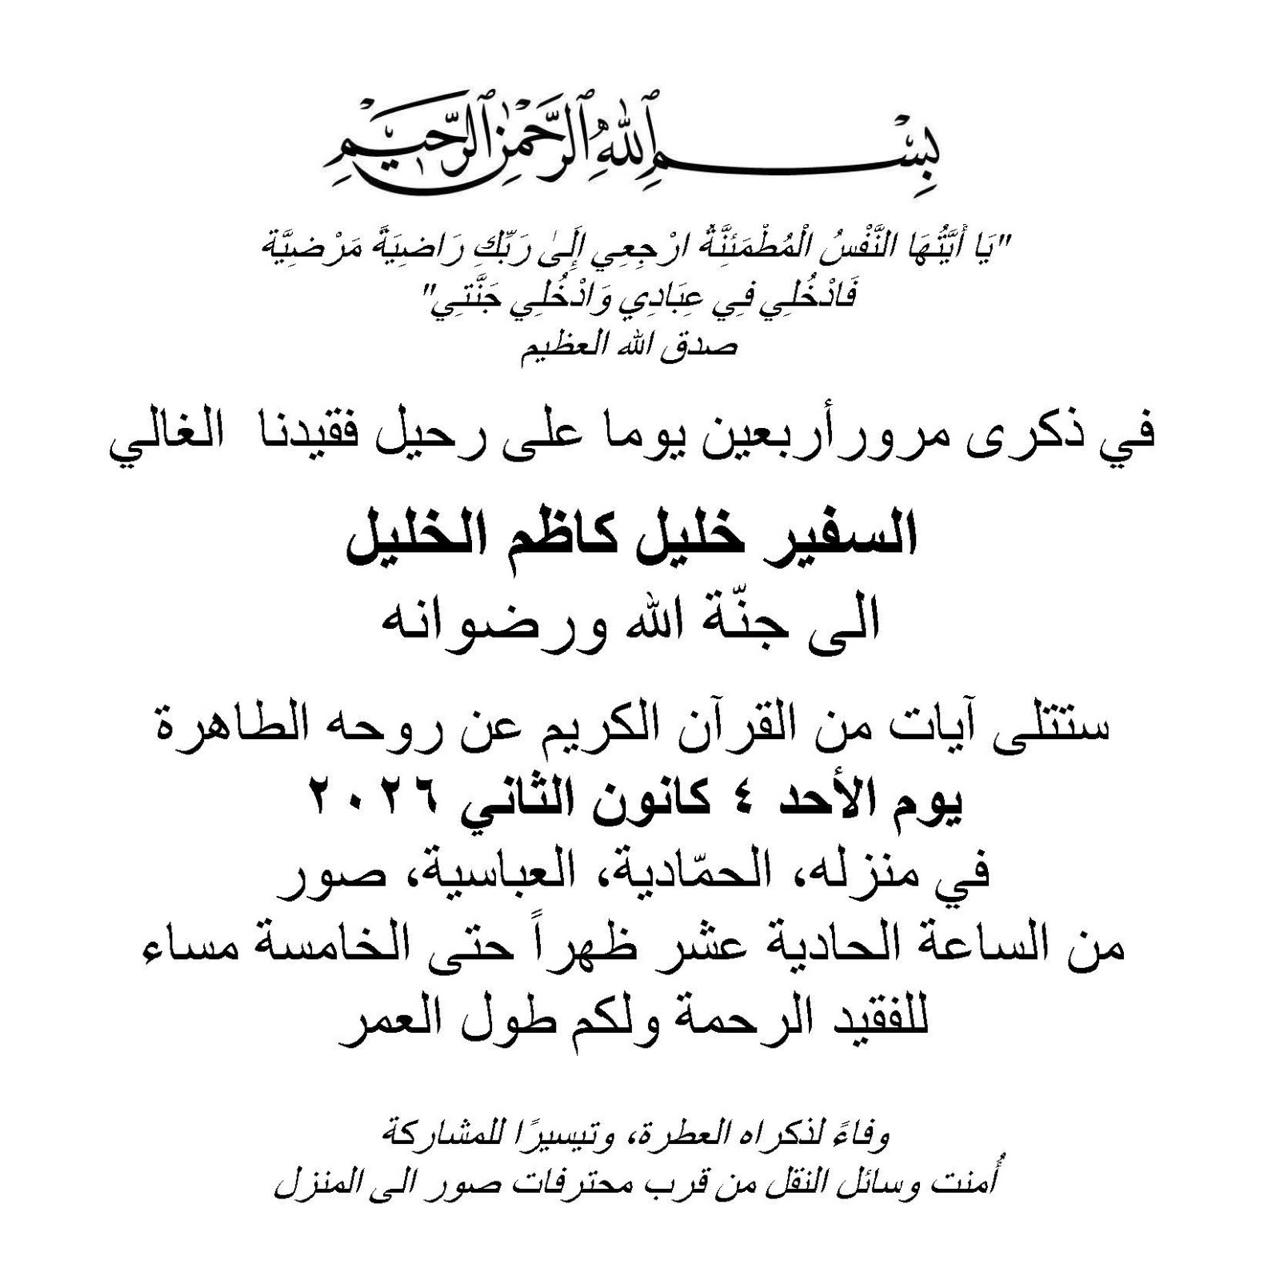 بِسْمِ ٱللَّهِ ٱلرَّحْمَٰنِ ٱلرَّحِيمِ
"يَا أَيَّتُهَا النَّفْسُ الْمُطْمَئِنَّةُ ارْجِعِي إِلَىٰ رَبِّكِ رَاضِيَةً مَرْضِيَّة
فَادْخُلِي فِي عِبَادِي وَادْخُلِي جَنَّتِي"
صدق الله العظيم
في ذكرى مرور أربعين يوما على رحيل فقيدنا الغالي
السفير خليل كاظم الخليل
الى جنّة الله ورضوانه
ستتلى آيات من القرآن الكريم عن روحه الطاهرة
يوم الأحد ٤ كانون الثاني ٢٠٢٦
في منزله، الحمّادية، العباسية، صور
من الساعة الحادية عشر ظهراً حتى الخامسة مساء
للفقيد الرحمة ولكم طول العمر
وفاءً لذكراه العطرة، وتيسيرًا للمشاركة
أُمنت وسائل النقل من قرب محترفات صور الى المنزل